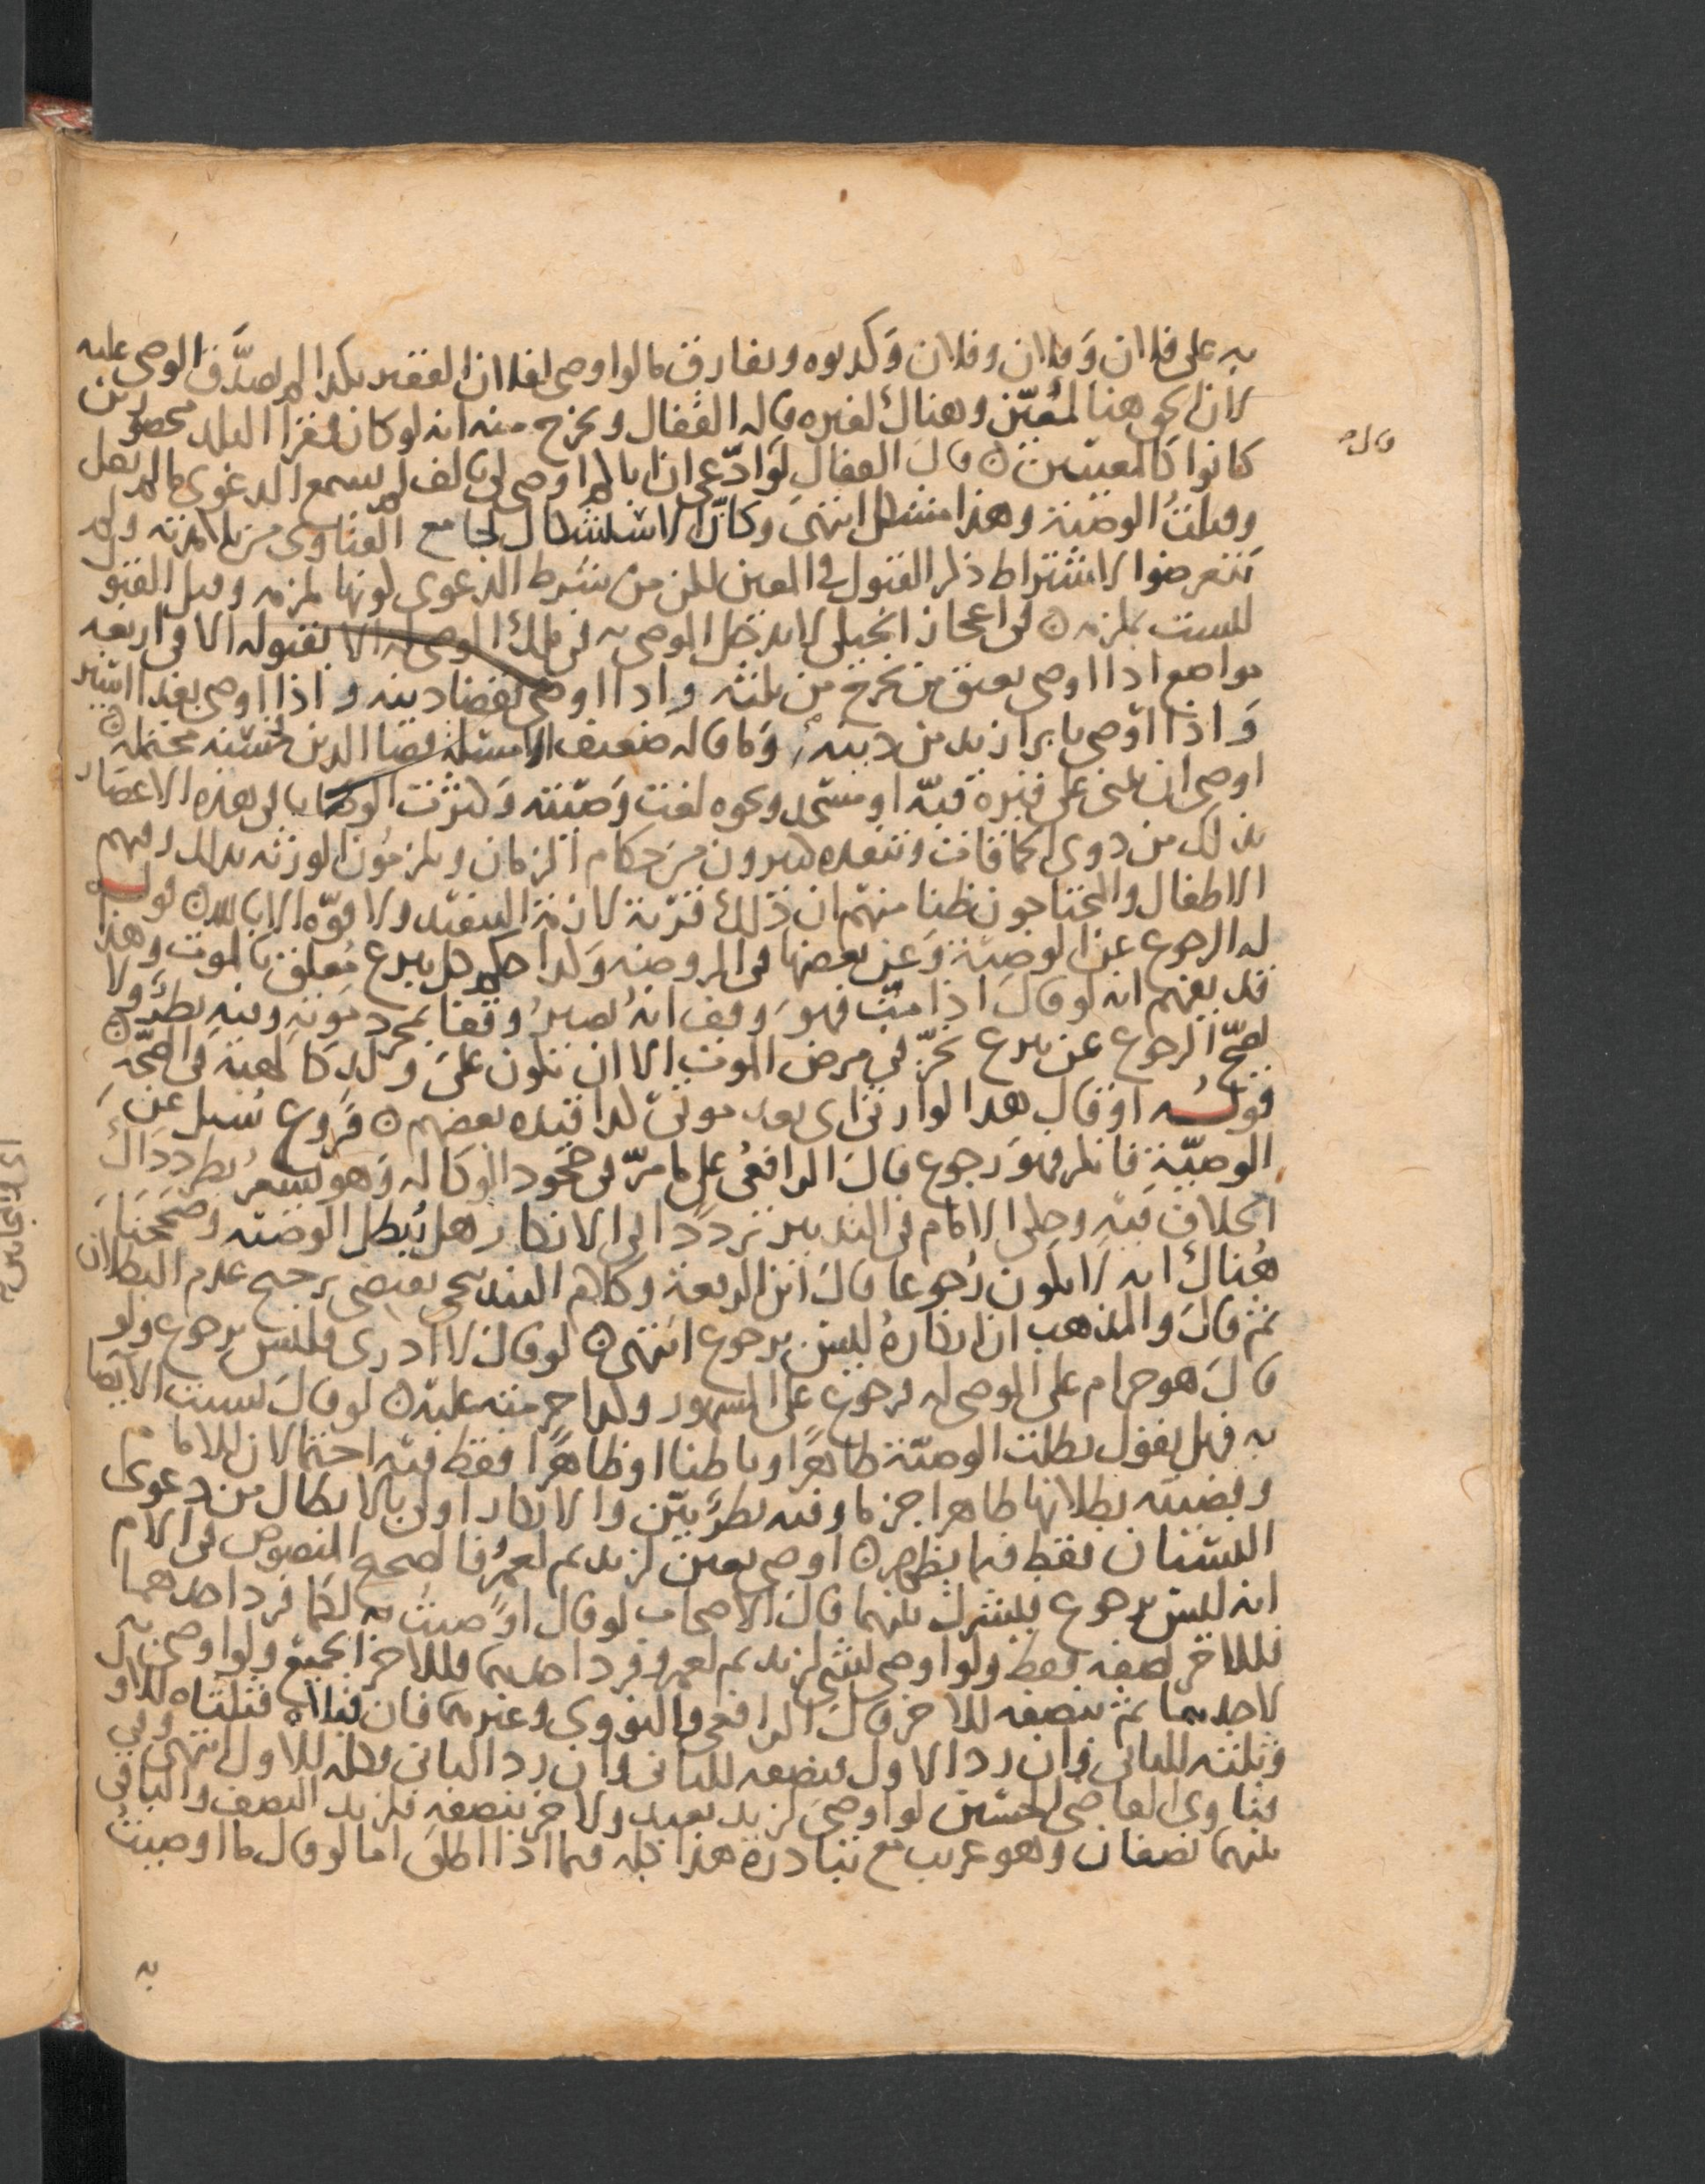 به على فلان وفلان وفلان وكذبوه ويفارق ما لو اوصى لفلان الفقير بكذا لم يصدق الوصي عليه
لان الحق هنا لمعين وهناك لغيره قاله القفال ويخرج منه انه لو كان فقرا البلد محصورين
كانوا كالمعينين قال القفال لو ادعى ان اباك اوصى لي بالف لم يسمع الدعوى ما لم يقل
وقبلت الوصية وهذا مشكل انتهى وكان الاستشكال لجامع الفتاوى من تلامذته ولم
يتعرضوا لاشتراط ذكر القبول في المعين لكن من شرط الدعوى كونها ملزمة وقبل القبول
ليست بملزمة في اعجاز الجيلي لا يدخل الموصى به في ملك الموصى له الا بقبوله الا في اربعة
مواضع اذا اوصى بعتق من يخرج من ثلثه واذا اوصى بقضا دينه واذا اوصى بفدا اسير
واذا اوصى بابرا زيد من دينه وما قاله ضعيف قضا الدين محتملة
اوصى ان يبنى على قبره قبة او مسجد ونحوه لغت وصيته وكثرت الوصايا في هذه الاعصار
بذلك من ذوي الحماقات وينفذه كثيرون من حكام الزمان ويلزمون الورثة بذلك وفيهم
الاطفال والمحتاجون ظنا منهم ان ذلك قربة لازمة التنفيذ ولا قوة الا بالله قوله
له الرجوع عن الوصية وعن بعضها في الروضة وكذا حكم كل تبرع معلق بالموت وهذا
قد يفهم انه لو قال اذا مت فهو وقف انه يصير وقفا بمجرد موته وفيه نظر ولا
يصح الرجوع عن تبرع نجز في مرض الموت الا ان تكون على ولد كالهبة في الصحة
قوله او قال هذا لوارثي اي بعد موتي كذا قيده بعضهم فروع سئل عن
الوصية فانكر فهو رجوع قال الرافعي على ما مر في جحود الوكالة وهو يشعر بطرد ذاك
الخلاف فيه وحكى الامام في التدبير ترددا في الانكار هل يبطل الوصية وصححنا
هناك انه لا يكون رجوعا قال ابن الرفعة وكلام البندنيجي يقتضي ترجيح عدم البطلان
ثم قال والمذهب ان انكاره ليس برجوع انتهى لو قال لا ادري فليس برجوع ولو
قال هو حرام على الموصى له فرجوع على المشهور وكذا حرمته عليه لو قال لست الايصا
به فهل نقول بطلت الوصية ظاهرا وباطنا او ظاهرا فقط فيه احتمالان للامام
وقضيته بطلانها ظاهرا جزما وفيه نظر بين والانكار اولى بالابطال من دعوى
النسيان فقط فيما يظهر اوصى بعين لزيد ثم لعمرو فالصحيح المنصوص في الام
انه ليس برجوع فيشرك بينهما قال الاصحاب لو قال اوصيت به لكما فرد احدهما
فللاخر نصفه فقط ولو اوصى بشي لزيد ثم لعمرو فرد احدهما فللاخر الجميع ولو اوصى به
لاحدهما ثم بنصفه للاخر قال الرافعي والنووي وغيرهما فان قبلاه فثلثاه للاول
وثلثه للثاني وان رد الاول فنصفه للثاني وان رد الثاني فكله للاول انتهى وفي
فتاوى القاضي الحسين لو اوصى لزيد بعبد ولاخر بنصفه فلزيد النصف والباقي
بينهما نصفان وهو غريب مع تبادره هذا كله فيما اذا اطلق اما لو قال ما اوصيت
به